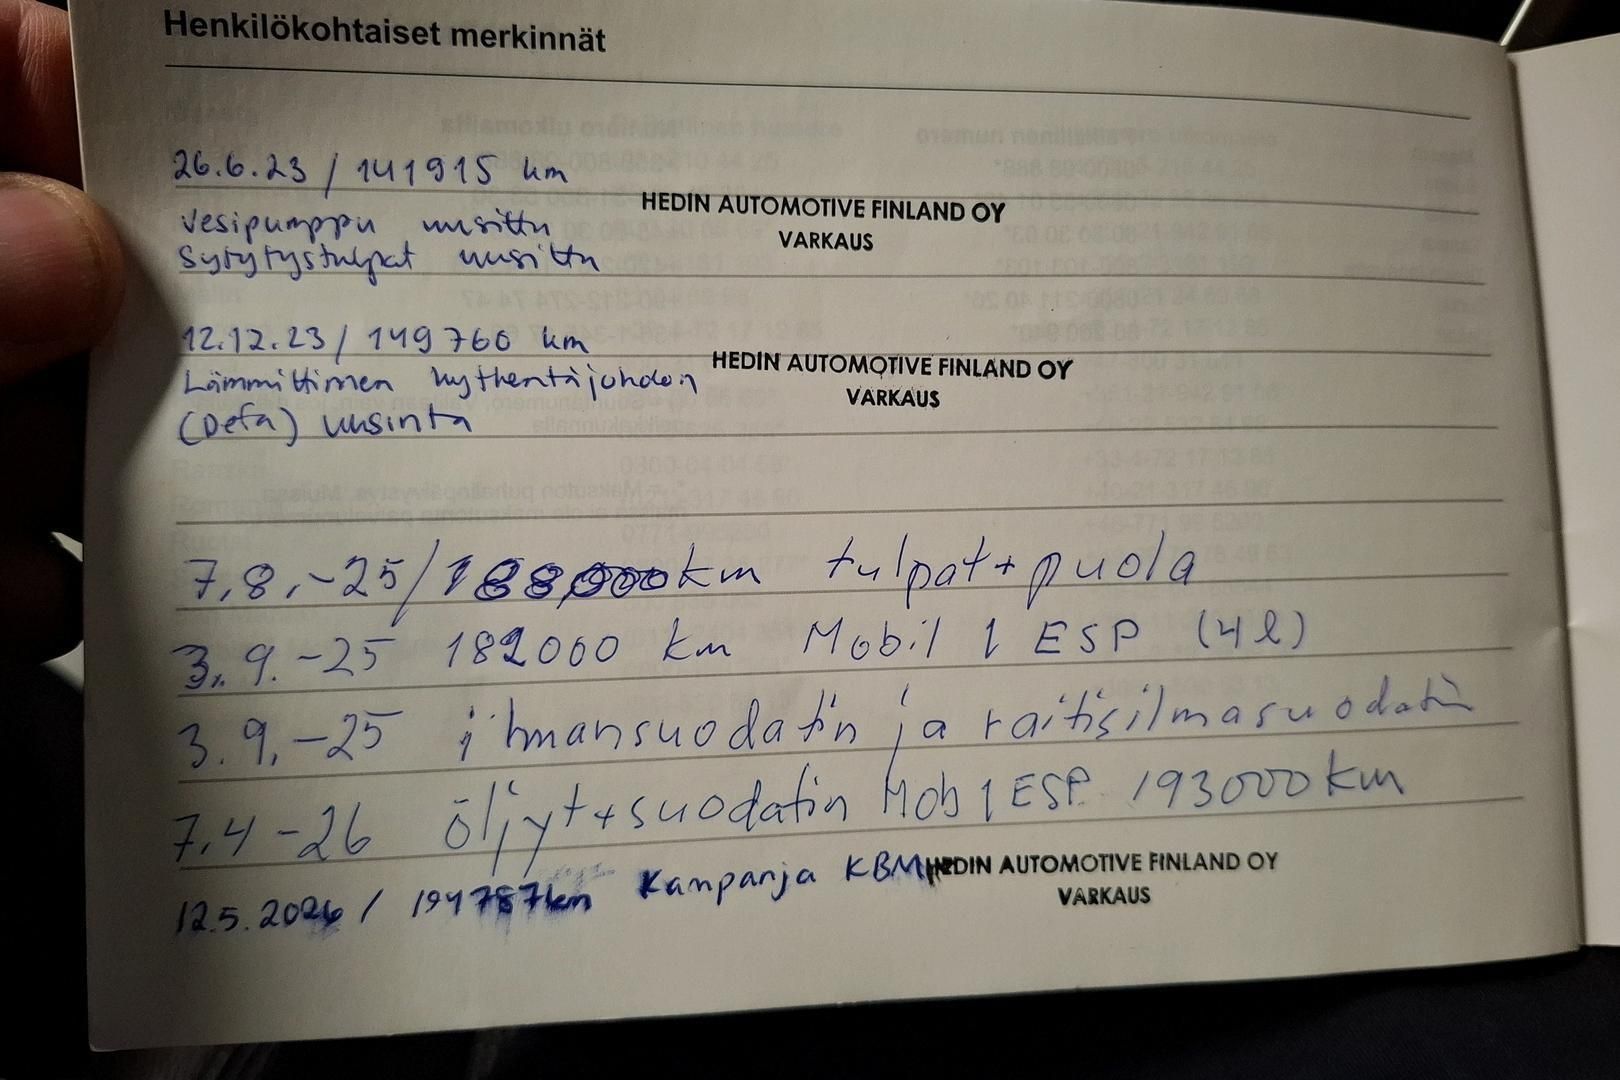 Henkilökohtaiset merkinnät
26.6.23 / 141915 km
Vesipumppu uusittu
HEDIN AUTOMOTIVE FINLAND OY
VARKAUS
Sytytystulpat uusittu
12.12.23 / 149760 km
HEDIN AUTOMOTIVE FINLAND OY
VARKAUS
Lämmittimen kythentäjohdon
(Defa) uusinta
7.8.-25/ km tulpat + puola
3.9.-25 182000 km Mobil 1 ESP (4l)
3.9.-25 ilmansuodatin ja raitisilmasuodatin
7.4-26 öljyt+suodatin Mob 1 ESP 193000 km
12.5.2026 / 194787km Kampanja KBM
HEDIN AUTOMOTIVE FINLAND OY
VARKAUS